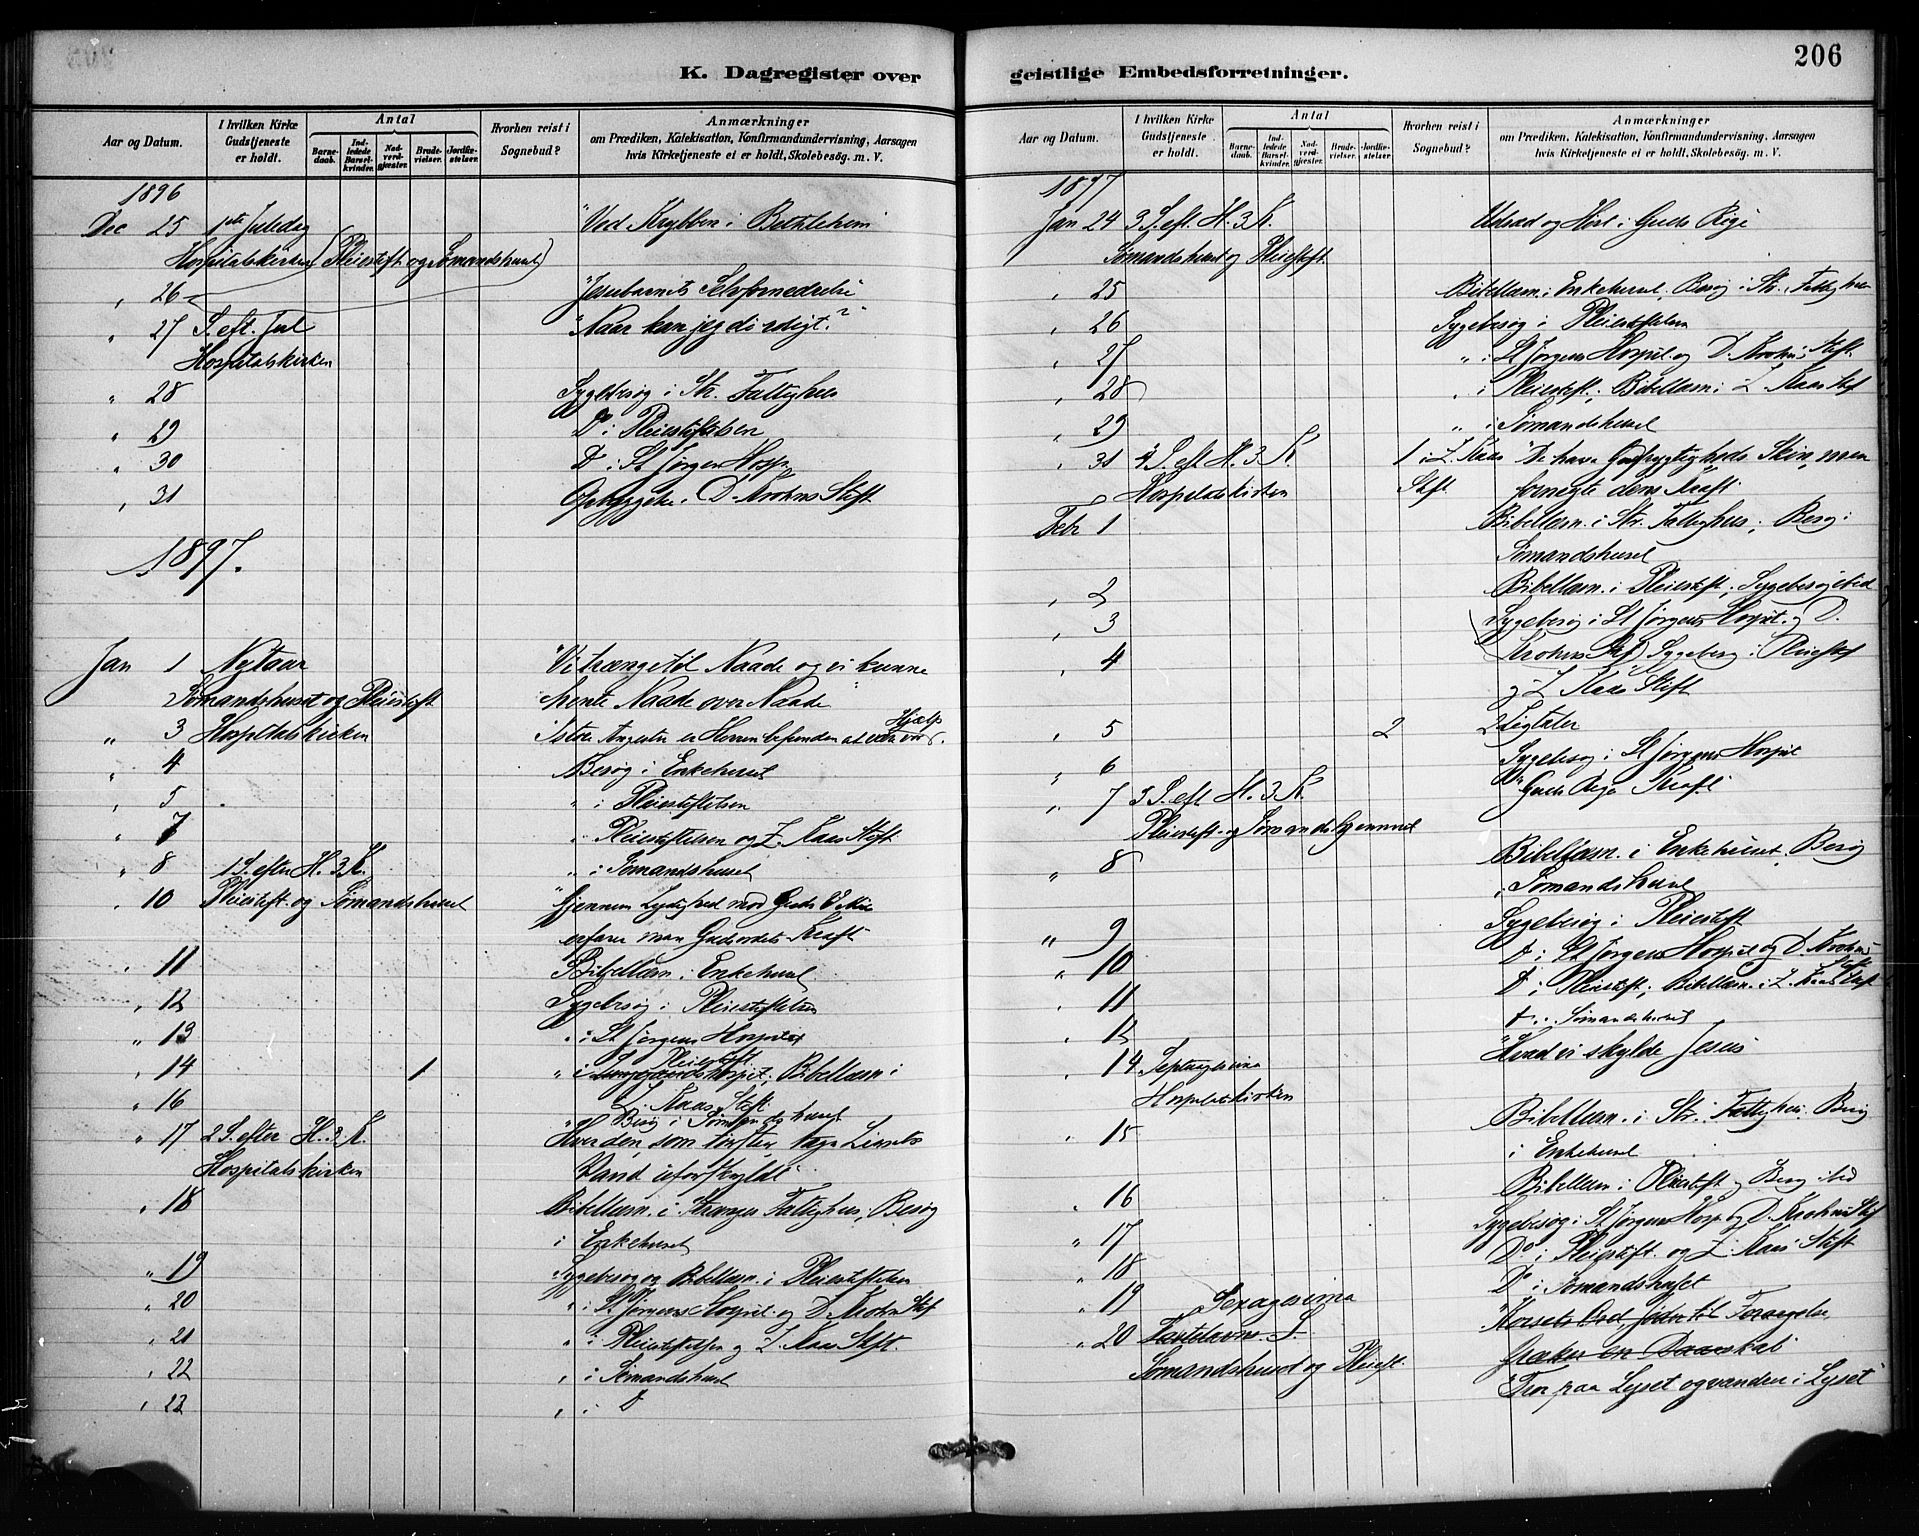 206
K. Dagregister over
geistlige Embedsforretninger.
Aar og Datum.
I hvilken Kirke Gudstjeneste er holdt.
Antal
Barnedaab.
Indledede Barselkvinder.
Nadverdgjester.
Brudevielser.
Jordfæstelser.
Hvorhen reist i Sognebud?
Anmærkninger
om Prædiken, Katekisation, Konfirmandundervisning, Aarsagen
hvis Kirketjeneste ei er holdt, Skolebesøg m. V.
1896
Dec 25 1ste Juledag "Ved Krybben i Bethlehem
Hospitalskirken (Pleiestift og Sømandshuset)
" 26 "Jesubarnets Selvfornedrelse
" 27 S. eft. Jul "Naar kan jeg dø roligt?"
Hospitalskirken
" 28 Sygebesøg i Str. Fattighus
" 29 Do i Pleiestiftelsen
" 30 Do i St Jørgens Hosp
" 31 Opbyggelse i D. Krohns Stift
1897.
Jan 1 Nytaar "Vi trænge til Naade og vi kunne
Sømandshuset og Pleiestift hente Naade over Naade"
" 3 Hospitalskirken I store Angester er Herren befunden at være vor Hjælp.
" 4 Besøg i Enkehuset
" 5 " i Pleiestiftelsen
" 7 " i Pleiestiftelsen og Z. Kaas Stift
" 8 1 S. efter H. 3 K. " i Sømandshuset
" 10 Pleiestift og Sømandshuset "Gjennem Lydighed mod Guds Vilje
erfarer man Gudsordets Kraft
" 11 Bibellæsn. i Enkehuset
" 12 Sygebesøg i Pleiestiftelsen
" 13 " i St Jørgens Hospital
" 14 1 " i Pleiestift; Bibellæsn i
Z. Kaas Stift
" 16 " Besøg i Sømandshuset
" 17 2 S. efter H. 3 K. Hver den, som tørster, tage Livets
Hospitalskirken Vand uforskyldt
" 18 Bibellæsn. i Stranges Fattighus, Besøg
i Enkehuset
" 19 Sygebesøg og Bibellæsn. i Pleiestiftelsen
" 20 " i St Jørgens Hospit. og D. Krohns Stift
" 21 " i Pleiestiftelsen og Z. Kaas Stift.
" 22 " i Sømandshuset
" 23 " i Do
Aar og Datum.
I hvilken Kirke Gudstjeneste er holdt.
Antal
Barnedaab.
Indledede Barselkvinder.
Nadverdgjester.
Brudevielser.
Jordfæstelser.
Hvorhen reist i Sognebud?
Anmærkninger
om Prædiken, Katekisation, Konfirmandundervisning, Aarsagen
hvis Kirketjeneste ei er holdt, Skolebesøg m. V.
1897
Jan 24 3 S. eft. H. 3 K. Udsæd og Høst i Guds Rige
Sømandshuset og Pleiestift
" 25 Bibellæsn. i Enkehuset, Besøg i Str. Fattighus
" 26 Sygebesøg i Pleiestiftelsen
" 27 " i St Jørgens Hospit. og D. Krohns Stift
" 28 " i Pleiestift; Bibellæsn i Z. Kaas Stift
" 29 " i Sømandshuset
" 31 4 S. eft H. 3 K. 1 i Z. Kaas "De have Gudfrygtigheds Skin, men
Hospitalskirken Stift fornegte dens Kraft
Febr 1 Bibellæsn. i Str. Fattighus; Besøg i
Sømandshuset
" 2 Bibellæsn. i Pleiestift; Sygebesøg
" 3 Sygebesøg i St Jørgens Hospit. og D.
Krohns Stift
" 4 Sygebesøg i Pleiestift
og Z. Kaas Stift
" 5 2 2 Ligtaler
" 6 Sygebesøg i St Jørgens Hospit
" 7 S. eft H. 3 K. Guds Riges Kraft
Pleiestift og Sømandshjemmet
" 8 Bibellæsn. i Enkehuset, Besøg
i Sømandshuset
" 9 Sygebesøg i Pleiestift
" 10 Do i St Jørgens Hospit og D. Krohns Stift
" 11 Do i Pleiestift; Bibellæsn. i Z. Kaas Stift
" 12 Do i Sømandshuset
" 14 Septuagesima "Hvad vi skylde Jesus
Hospitalskirken
" 15 Bibellæsn. i Str. Fattighus. Besøg
i Enkehuset
" 16 Bibellæsn i Pleiestift og Besøg
" 17 Sygebesøg i St Jørgens Hosp. og D. Krohns Stift
" 18 Do i Pleiestift. og Z. Kaas Stift
" 19 Do i Sømandshuset
Sexagesima
" 20 Fastelavns S. "Korsets Ord, Jøder til Forargelse,
Sømandshuset og Pleiestift. Græker en Daarskab
"Tror paa Lyset og vandrer i Lyset"